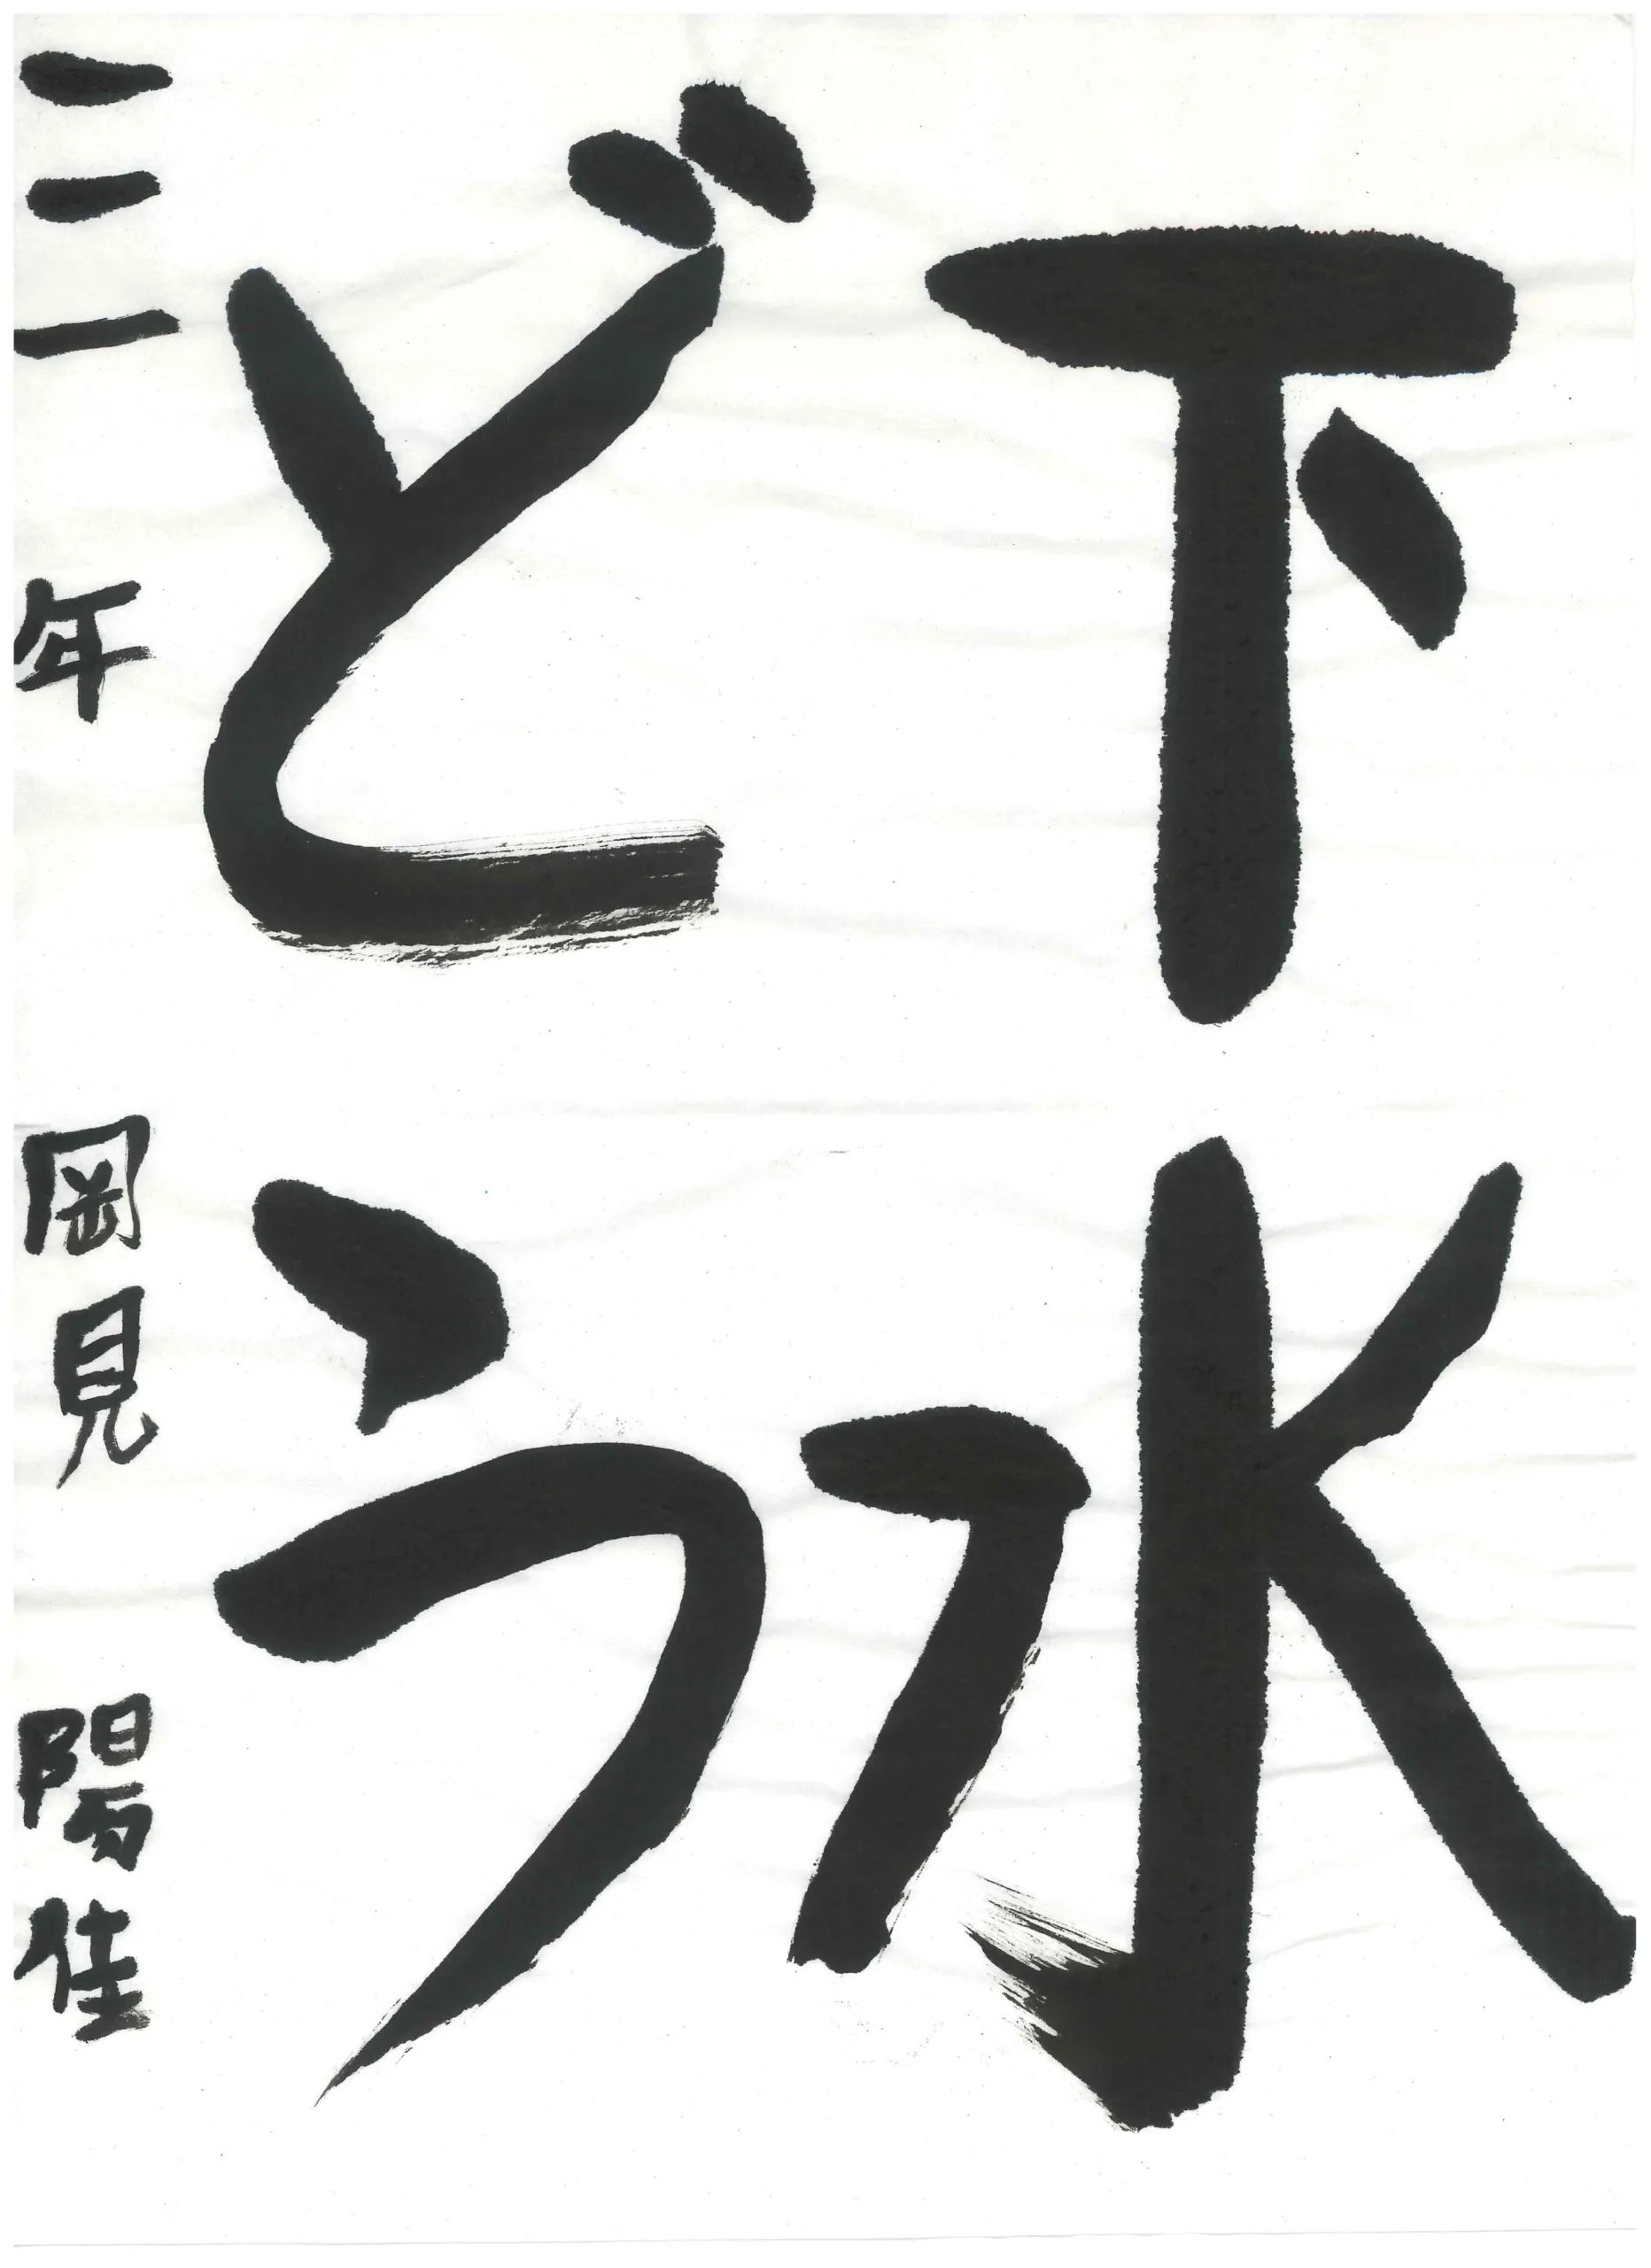 下水
どう
三年 岡見 陽佳